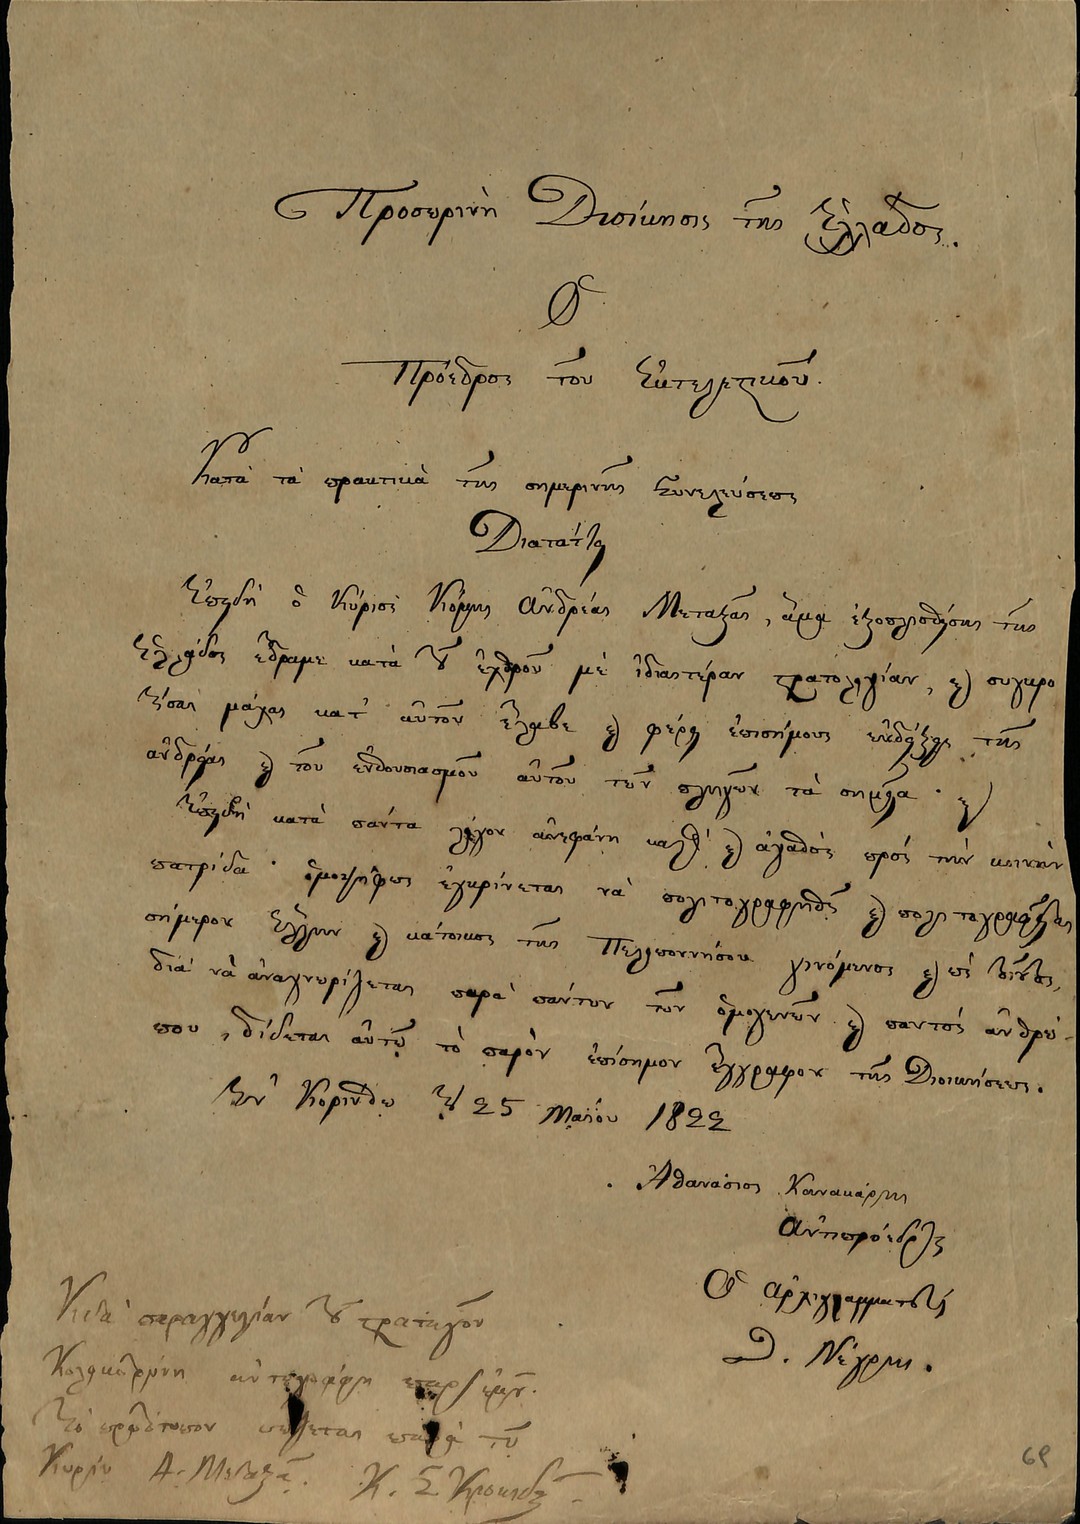 Προσωρινὴ Διοίκησις τῆς Ἑλλάδος.
Ὁ
Πρόεδρος τοῦ Ἐκτελεστικοῦ.
Κατὰ τὰ πρακτικὰ τῆς σημερινῆς Συνελεύσεως
Διατάττει
Ἐπειδὴ ὁ Κύριος Κόμης Ἀνδρέας Μεταξᾶς, ἅμα ἐξοπλισθείσης τῆς
Ἑλλάδος ἔδραμε κατὰ τοῦ ἐχθροῦ μὲ ἰδιαιτέραν στρατολογίαν, καὶ συγκρο
τήσας μάχας κατ' αὐτοῦ ἔλαβε καὶ φέρει ἐπισήμους ἐνδείξεις τῆς
ἀνδρείας καὶ τοῦ ἐνθουσιασμοῦ αὐτοῦ τῶν πληγῶν τὰ σημεῖα · καὶ
Ἐπειδὴ κατὰ πάντα λόγον ἀνεφάνη καλὸς καὶ ἀγαθὸς πρὸς τὴν κοινὴν
πατρίδα · ὁμοψήφως ἐγκρίνεται νὰ πολιτογραφηθῇ καὶ πολιτογραφεῖται
σήμερον Ἕλλην καὶ κάτοικος τῆς Πελοποννήσου γινόμενος καὶ
διὰ νὰ ἀναγνωρίζεται παρὰ πάντων τῶν ὁμογενῶν καὶ παντὸς ἀνθρώ-
που, δίδεται αὐτῷ τὸ παρὸν ἐπίσημον ἔγγραφον τῆς Διοικήσεως.
Ἐν Κορίνθῳ τῇ 25 Μαΐου 1822
Ἀθανάσιος Κανακάρης
Ἀντιπρόεδρος
Ὁ Ἀρχιγραμματεὺς
Θ. Νέγρης.
Κατὰ παραγγελίαν τοῦ στρατηγοῦ
Κολοκοτρώνη ἀντεγράφη παρ' ἐμοῦ.
Τὸ πρωτότυπον παρὰ τῷ
Κυρίῳ Α. Μεταξᾷ. Κ. Σ.
69